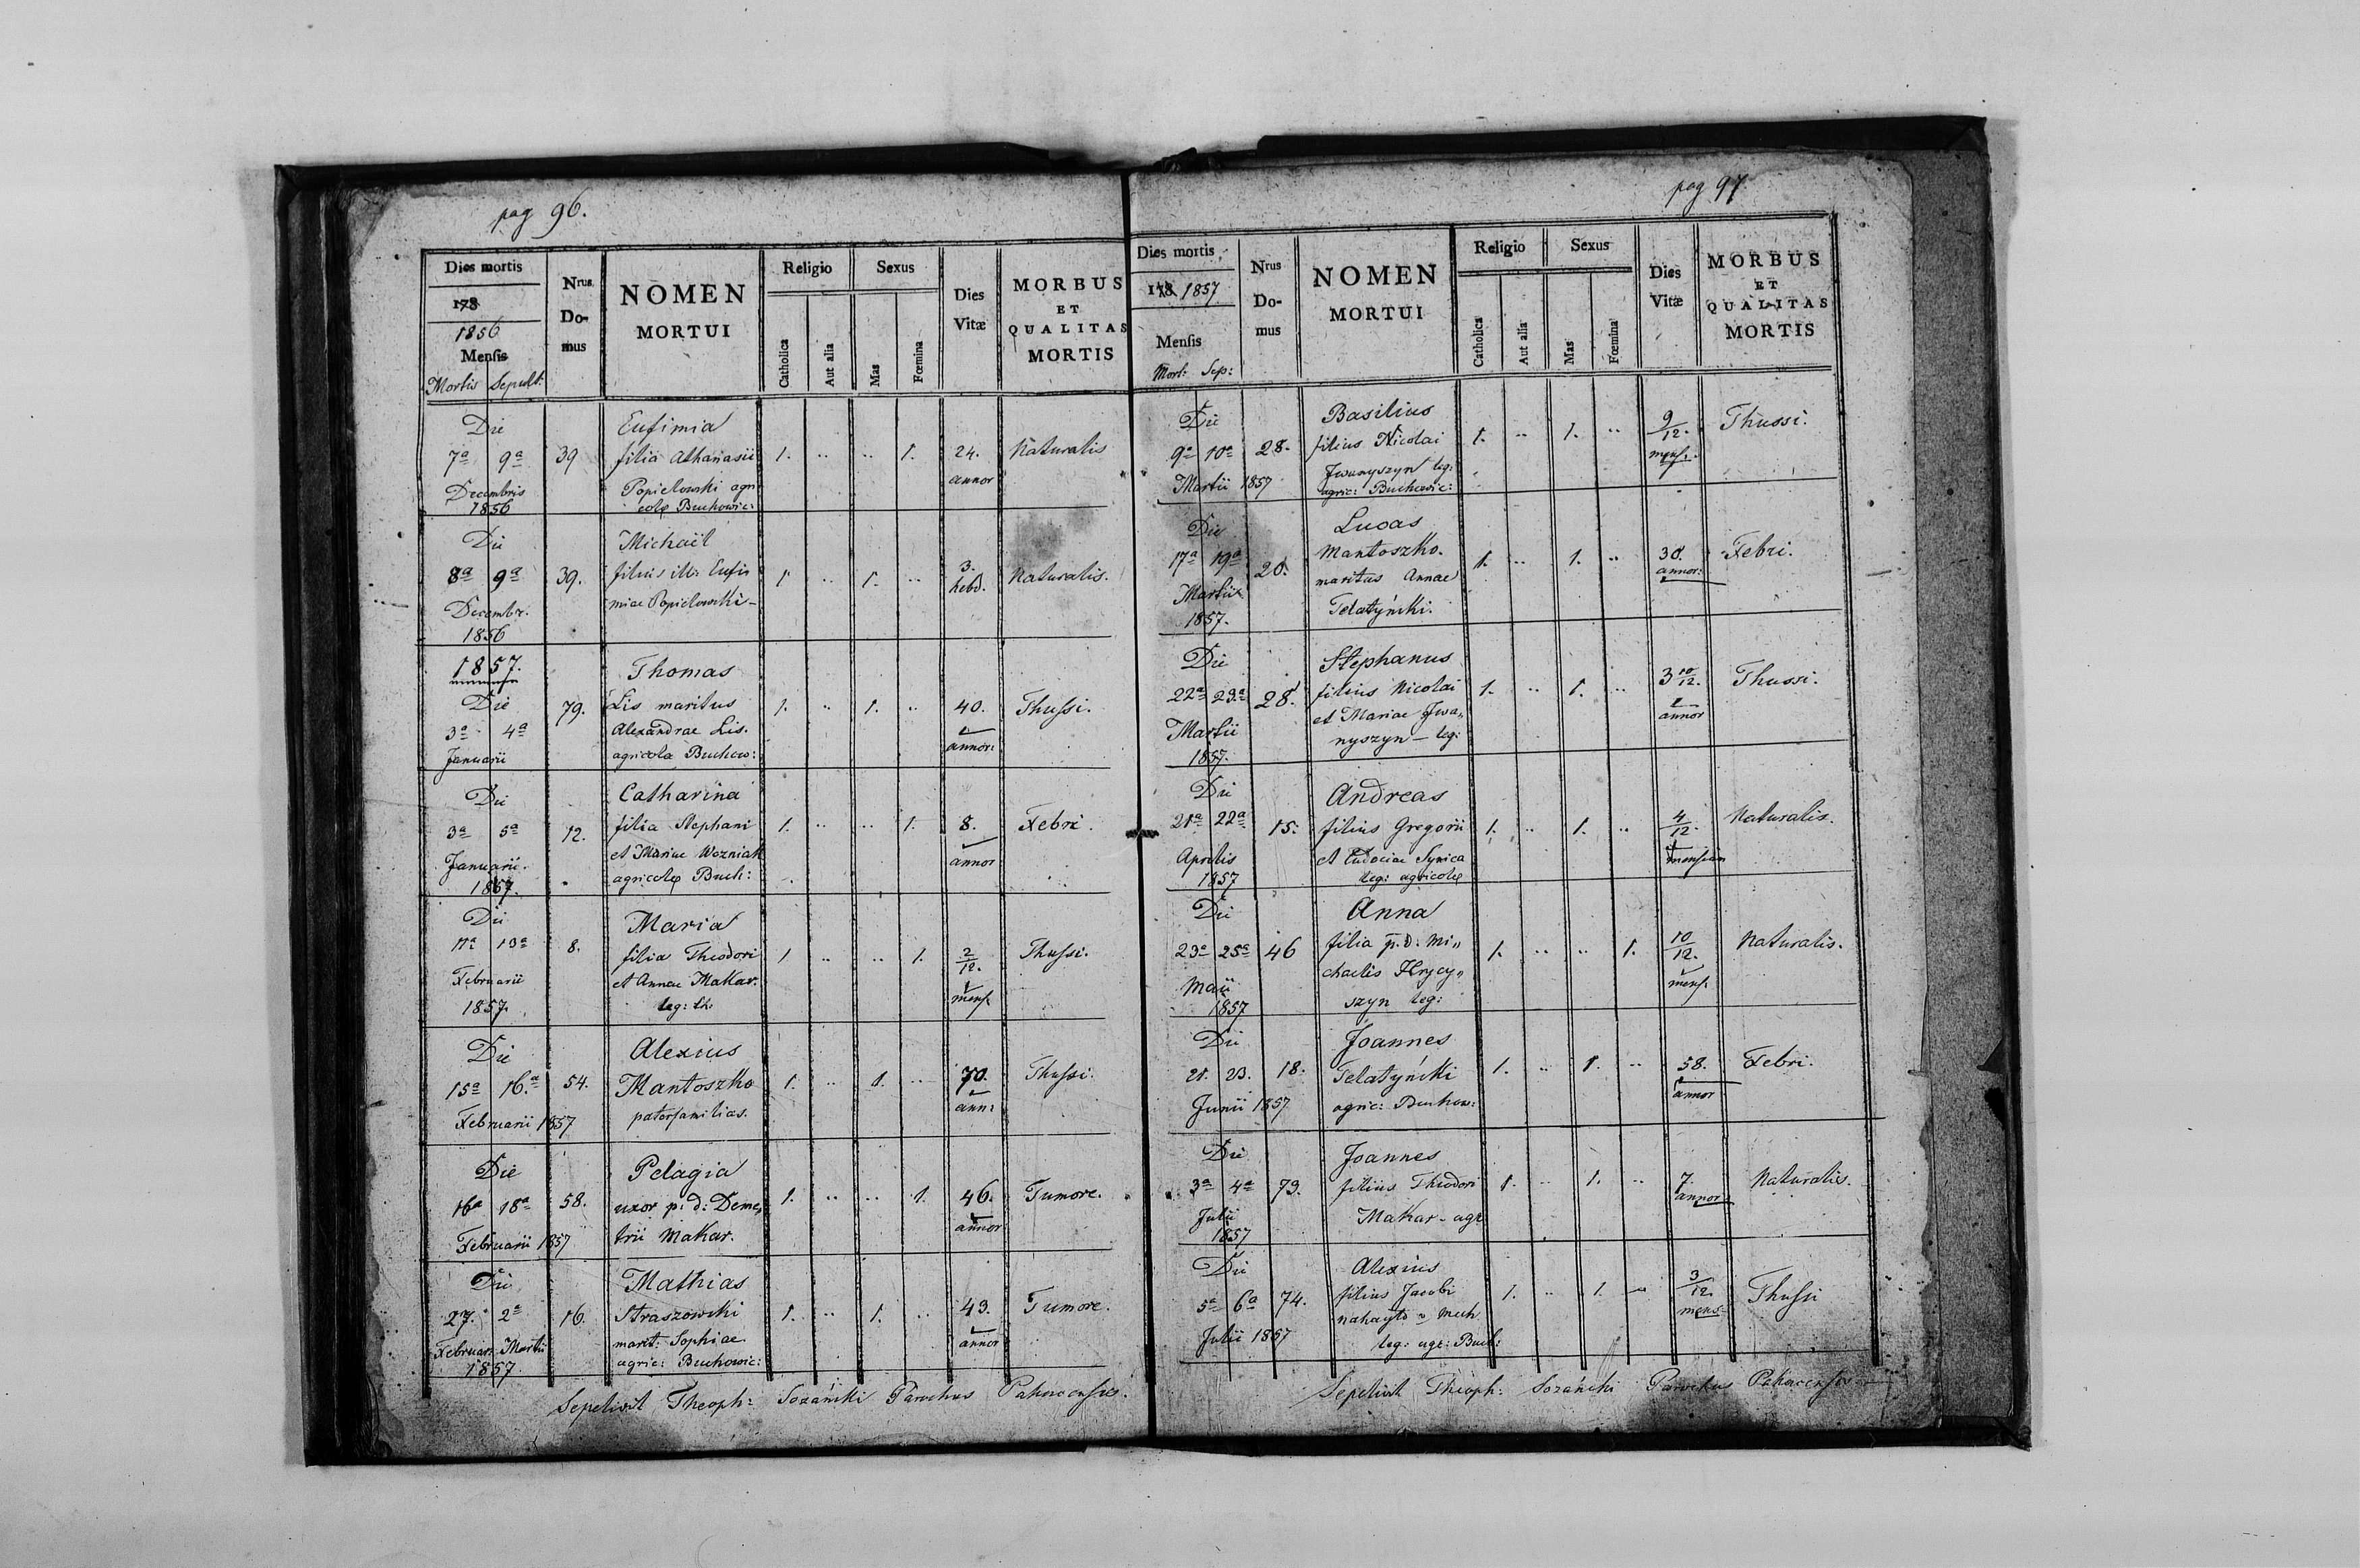 pag 96.
Dies mortis
178
1856
Mensis
Mortis Sepult:
Nrus. Do- mus
NOMEN
MORTUI
Religio
Catholica
Aut alia
Sexus
Mas
Fœmina
Dies
Vitæ
MORBUS
ET
QUALITAS
MORTIS
Die
Eufimia
7a 9a 39 filia Athanasii 1. .. .. 1. 24. Naturalis
Decembris Popielowski agri annor
1856 colæ Buchowic:
Die
Michaël
8a 9a 39. filius ill: Eufi- 1. .. 1. .. 3. hebd. Naturalis.
Decembr. miae Popielowski-
1856
1857.
Thomas
Die
3a 4a 79. Lis maritus 1. .. 1. .. 40. Thussi.
Alexandrae Lis. annor:
Januarii agricola Buchow:
Die
Catharina
3a 5a 12. filia Stephani 1. .. .. 1. 8. Febri.
et Mariae Wozniak annor
Januarii. agricolæ Buch:
1857.
Die
Maria
11a 13a 8. filia Theodori 1 .. .. 1. 2/12. Thussi.
Februarii et Annae Makar. mens.
1857. leg: th:
Die
Alexius
15a 16.a 54. Mantoszko 1. .. 1. .. 70. Thussi.
Februarii 1857 paterfamilias. ann:
Die
Pelagia
16a 18a 58. uxor p: d: Deme, 1. .. .. 1. 46. Tumore.
Februarii 1857 trii Makar. annor
Die
Mathias
27. 2a 16. Straszowski 1. .. 1. .. 43. Tumore.
Februar. Martii marit. Sophiae annor
1857. agric: Buchowic:
Sepelivit Theoph: Sozański Parochus
pag 97
Dies mortis
178 1857
Mensis
Mort: Sep:
Nrus Do- mus
NOMEN
MORTUI
Religio
Catholica
Aut alia
Sexus
Mas
Fœmina
Dies
Vitæ
MORBUS
ET
QUALITAS
MORTIS
Die
Basilius
9a 10a 28. filius Nicolai 1. .. 1. .. 9/12. Thussi.
Martii 1857 Jwanyszyn leg: mens.
agric: Buchowic:
Die
Lucas
17a 19a 20. Mantoszko. 1. .. 1. .. Febri.
Martii maritus Annae annor:
1857. Telatyński.
Die
Stephanus
22a 23.a 28. filius Nicolai 1. .. 1. .. 3 10/12. Thussi.
Martii et Mariae Jwa,, annor
1857. nyszyn - leg:
Die
Andreas
21a 22a 15. filius Gregorii 1. .. 1. .. 4/12. Naturalis.
Aprilis et Eudociae mensium
1857 leg: agricolæ
Die
Anna
23a 25a 46 filia p.d: Mi,, 1. .. .. 1. 10/12. Naturalis.
Maii chaelis Hrycy,, mens.
1857 szyn leg:
Die
Joannes
21. 23. 18. Telatyński 1. .. 1. .. 58. Febri.
Junii 1857 agric: Buchow: annor
Die
Joannes
3a 4a 79. filius Theodori 1. .. 1. .. 7. Naturalis.
Julii Makar - agr annor
1857
Die
Alexius
5a 6a 74. filius Jacobi 1. .. 1. .. 3/12. Thussi
mens
Julii 1857 leg: agr: Buch:
Sepelivit Theoph: Sozański Parochus